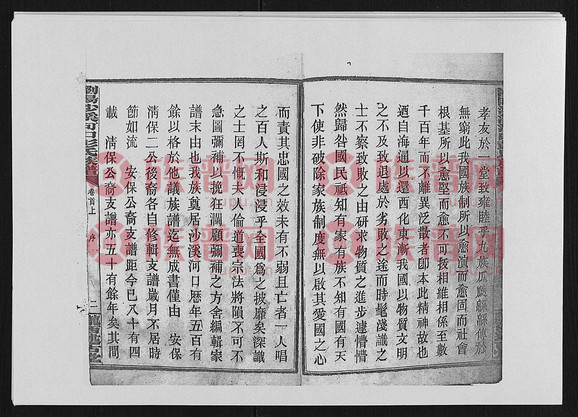 孝友於一堂致雍睦乎九族瓜瓞縣縣傳於
無窮此我國族制所以愈演而愈固而社會
根基所以愈堅而愈不可拔相維相係至數
千百年而不離異泛散者卽本此精神故也
迺自海通以還西化東漸我國以物質文明
之不及致退處於劣敗之途而時髦淺識之
士不察致敗之由研求物質之進步遽懵懵
然歸咎國民祇知有家有族不知有國有天
下使非破除家族制度無以啟其愛國之心
而責其忠國之效未有不弱且亡者一人唱
之百人斯和浸浸乎全國爲之披靡矣深識
之士罔不慨夫人倫道喪示法將隕不可不
急圖彌補以挽狂瀾顧彌補之方舍編輯家
譜末由也我族奠居沙溪河口歷年五百有
餘以格於他議族譜迄無成書僅由 安保
清保二公後裔各自修輯支譜歲月不居時
節如流 安保公裔支譜距今已八十有四
載 清保公裔支譜亦五十有餘年矣其間
瀏陽沙溪河口彭氏族譜 卷首上 序 二